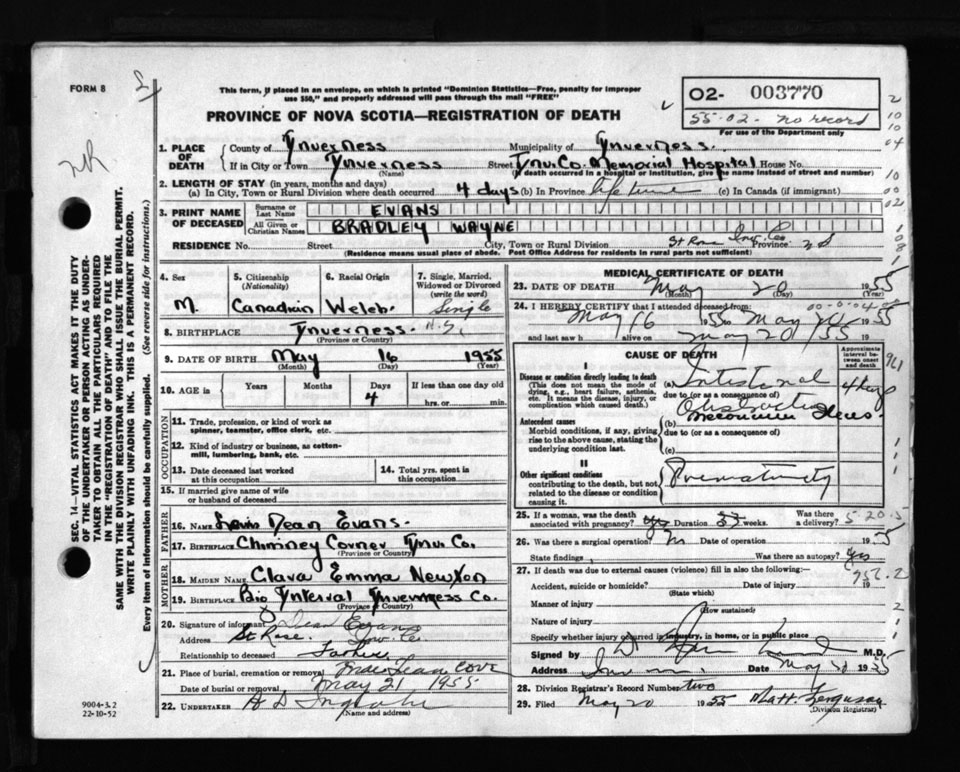 FORM 8
This form, if placed in an envelope, on which is printed "Dominion Statistics—Free, penalty for improper
use $50," and properly addressed will pass through the mail "FREE"
PROVINCE OF NOVA SCOTIA—REGISTRATION OF DEATH
O2- 003770
55-02- no record
For use of the Department only
2
10
10
04
10
00
02
NR
1. PLACE OF DEATH
County of Inverness Municipality of Inverness
If in City or Town Inverness (Name) Street Inv. Co. Memorial Hospital House No.
(If death occurred in a hospital or institution, give its name instead of street and number)
2. LENGTH OF STAY (in years, months and days)
(a) In City, Town or Rural Division where death occurred 4 days (b) In Province life time (c) In Canada (if immigrant)
3. PRINT NAME OF DECEASED
Surname or Last Name EVANS
All Given or Christian Names BRADLEY WAYNE
RESIDENCE No. Street City, Town or Rural Division St Rose Inv. Co. Province N S
(Residence means usual place of abode. Post Office Address for residents in rural parts not sufficient)
4. Sex M.
5. Citizenship (Nationality) Canadian
6. Racial Origin Welsh
7. Single, Married, Widowed or Divorced (write the word) Single
8. BIRTHPLACE Inverness N.S.
(Province or Country)
9. DATE OF BIRTH May 16 1955
(Month) (Day) (Year)
10. AGE is Years Months Days 4 If less than one day old hrs. or min.
OCCUPATION
11. Trade, profession, or kind of work as spinner, teamster, office clerk, etc.
12. Kind of industry or business, as cotton-mill, lumbering, bank, etc.
13. Date deceased last worked at this occupation
14. Total yrs. spent in this occupation
15. If married give name of wife or husband of deceased
FATHER
16. NAME Dean Evans.
17. BIRTHPLACE Chimney Corner Inv. Co.
(Province or Country)
MOTHER
18. MAIDEN NAME Clara Emma Newton
19. BIRTHPLACE Big Interval Inverness Co.
(Province or Country)
20. Signature of informant Dean Evans
Address St Rose. Inv. Co.
Relationship to deceased Father
21. Place of burial, cremation or removal Cove
Date of burial or removal May 21 1955
22. UNDERTAKER A D
(Name and address)
MEDICAL CERTIFICATE OF DEATH
23. DATE OF DEATH May 20 1955
(Month) (Day) (Year)
24. I HEREBY CERTIFY that I attended deceased from:
May 16 1955 to May 20 1955
and last saw h alive on May 20/55 19
CAUSE OF DEATH
Approximate interval between onset and death
I
Disease or condition directly leading to death
(This does not mean the mode of dying, e.g., heart failure, asthenia, etc. It means the disease, injury, or complication which caused death.)
(a) Intestinal 4 days
due to (or as a consequence of)
Obstruction
Antecedent causes
Morbid conditions, if any, giving rise to the above cause, stating the underlying condition last.
(b) meconium Ileus
due to (or as a consequence of)
(c)
II
Other significant conditions
contributing to the death, but not related to the disease or condition causing it.
Prematurity
25. If a woman, was the death associated with pregnancy? yes Duration 33 weeks. Was there a delivery? 5-20-5
26. Was there a surgical operation? Date of operation 19 55
State findings Was there an autopsy? yes
27. If death was due to external causes (violence) fill in also the following:—
Accident, suicide or homicide? Date of injury 19
(State which)
Manner of injury
(How sustained)
Nature of injury
Specify whether injury occurred in industry, in home, or in public place
Signed by M.D.
Address Date May 20 1955
28. Division Registrar's Record Number two
29. Filed May 20 1955 Matt. Ferguson
(Division Registrar)
SEC. 14—VITAL STATISTICS ACT MAKES IT THE DUTY
OF THE UNDERTAKER OR PERSON ACTING AS UNDER-
TAKER TO OBTAIN ALL THE PARTICULARS REQUIRED
IN THE "REGISTRATION OF DEATH" AND TO FILE THE
SAME WITH THE DIVISION REGISTRAR WHO SHALL ISSUE THE BURIAL PERMIT.
WRITE PLAINLY WITH UNFADING INK. THIS IS A PERMANENT RECORD.
Every item of information should be carefully supplied. (See reverse side for instructions.)
9004-3.2
22-10-52